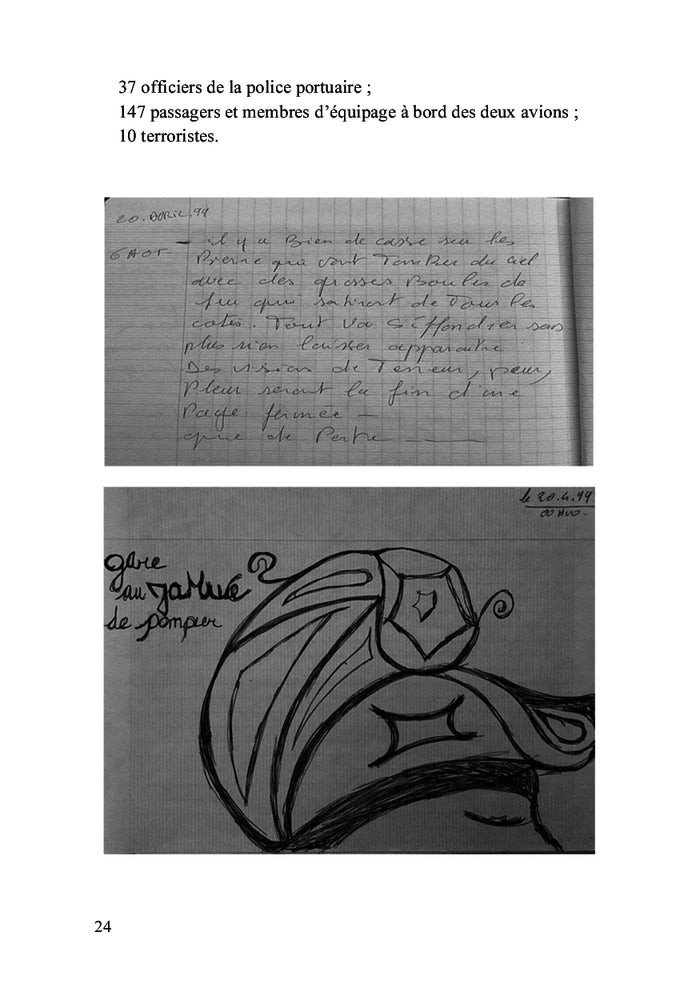 37 officiers de la police portuaire ;
147 passagers et membres d’équipage à bord des deux avions ;
10 terroristes.
20. AVRIL. 99
6H05 - il y a Bien de casse sur les
Pierre qui vont Tomber du ciel
avec des grosses Boules de
feu qui de Tous les
cotés. Tout va s'effondrer sans
plus rien laisser apparaitre
Des visions de Terreur, peur,
Pleur seront la fin d'une
Page fermée -
que de Perte
le 20.4.99
gare
au
de pompier
24